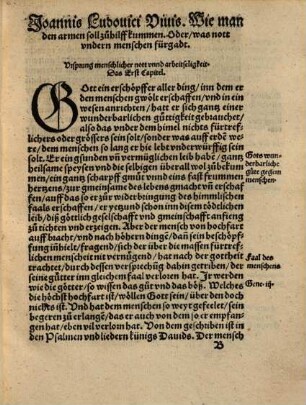 Joannis Ludouici Viuis. Wie man
den armen soll zů hilff kummen. Oder/ was nott
vndern menschen fürgadt.
Vrsprung menschlicher nott vnnd arbeitseligkeit.
Das Erst Capitel.
GOtt ein erschöpffer aller ding/ inn dem er
den menschen gwölt erschaffen/ vnd in ein
wesen anrichten/ hatt er sich gantz einer
wunderbarlichen gütigkeit gebrauchet/
also das vnder dem himel nichts fürtref-
lichers oder grössers sein solt/ sonder was auff erd we-
re/ dem menschen so lang er hie lebt vnderwürffig sein
solt. Er ein gsunden vñ vermüglichen leib habe/ gantz
heilsame speysen vnd die selbigen überall wol zů bekum-
men/ ein gantz scharpff gmüt von anfang eins frummen
herzens/ zur gmeinsame des lebens gmacht vñ erschaf-
fen/ auff das so er zur widerbringung des himmlischen
faals erschaffen/ er yetzund schon inn disem tödtlichen
leib/ diß göttlich gesellschafft vnd gmeinschafft anfieng
zů richten vnd erzeigen. Aber der mensch von hochfart
auff bracht/ vnd nach höhern dingē/ dañ sein beschöp-
fung ůbicle/ fragend/ sich der über die massen fürtreff-
lichen menschheit nit vernügend/ hat nach der gottheit
trachtet/ durch dessen verspreching dahin getriben/ der
seine gütter im glichem faal verloren hat. Ir werden
wie die götter/ so wissen das gůt vnd das böß. Welches
die höchst hochfart ist/ wöllen Gott sein/ über den doch
nichts ist. Vnd hat dem menschen so weyt gefeelet/ sein
begeren zů erlangē/ das er auch von dem so er empfan-
gen hat/ eben vil verlorn hat. Von dem geschriben ist in
den Psalmen vnd liedern künigs Dauids. Der mensch
B
Gots wun-
derbarliche
güte gegem
menschen.
Faal des
menschens
Gene. iij.